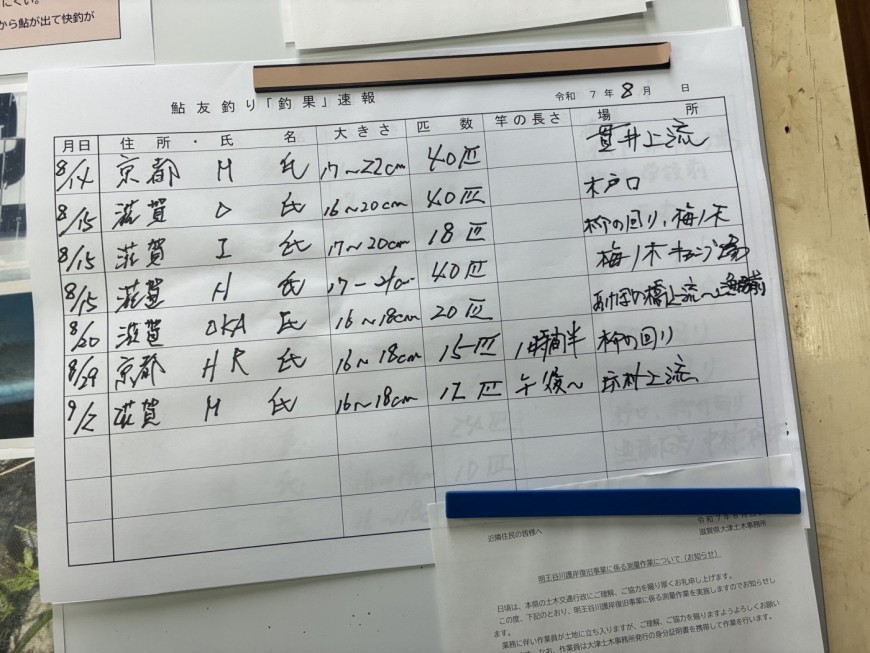 にくい。
から鮎が出て快釣が
鮎友釣り「釣果」速報
令和 7年 8月 日
月日 住所・氏名 大きさ 匹数 竿の長さ 場所
8/14 京都 M 氏 17~22cm 40匹 貫井上流
8/15 滋賀 O 氏 16~20cm 40匹 木戸口
8/15 滋賀 I 氏 17~20cm 18匹 柳の回り、梅ノ木
8/15 滋賀 H 氏 40匹 梅ノ木キャンプ場
8/20 滋賀 OKA 氏 16~18cm 20匹 あけぼの橋上流~
8/29 京都 HR 氏 16~18cm 15匹 1時間半 柳の回り
9/2 滋賀 M 氏 16~18cm 12匹 午後~ 坊村上流
令和7年8月
近隣住民の皆様へ
滋賀県大津土木事務所
明王谷川護岸復旧事業に係る測量作業について(お知らせ)
日頃は、本県の土木交通行政にご理解、ご協力を賜り厚くお礼申し上げます。
この度、下記のとおり、明王谷川護岸復旧事業に係る測量作業を実施しますのでお知らせし
ます。
業務に伴い作業員が土地に立ち入りますが、ご理解、ご協力を賜りますようよろしくお願い
なお、作業員は大津土木事務所発行の身分証明書を携帯して作業を行います。